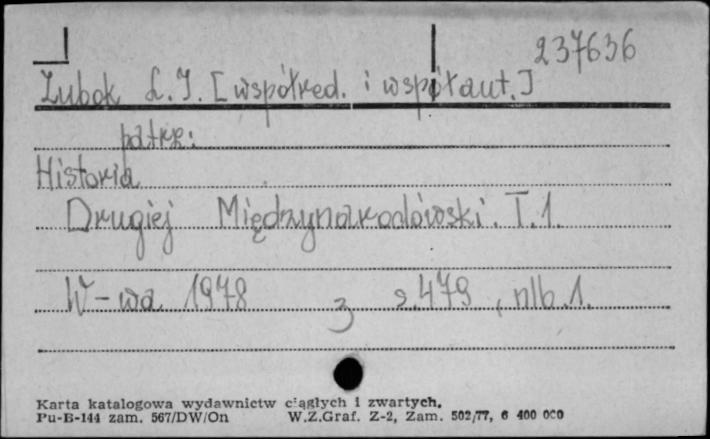 237636
Zubok L.I. [współred. i współaut.]
patrz:
Historia
Drugiej Międzynarodówski. T.1.
W-wa 1978 3 s.479, nlb.1.
Karta katalogowa wydawnictw ciągłych i zwartych.
Pu-B-144 zam. 567/DW/On W.Z.Graf. Z-2, Zam. 502/77, 6 400 000